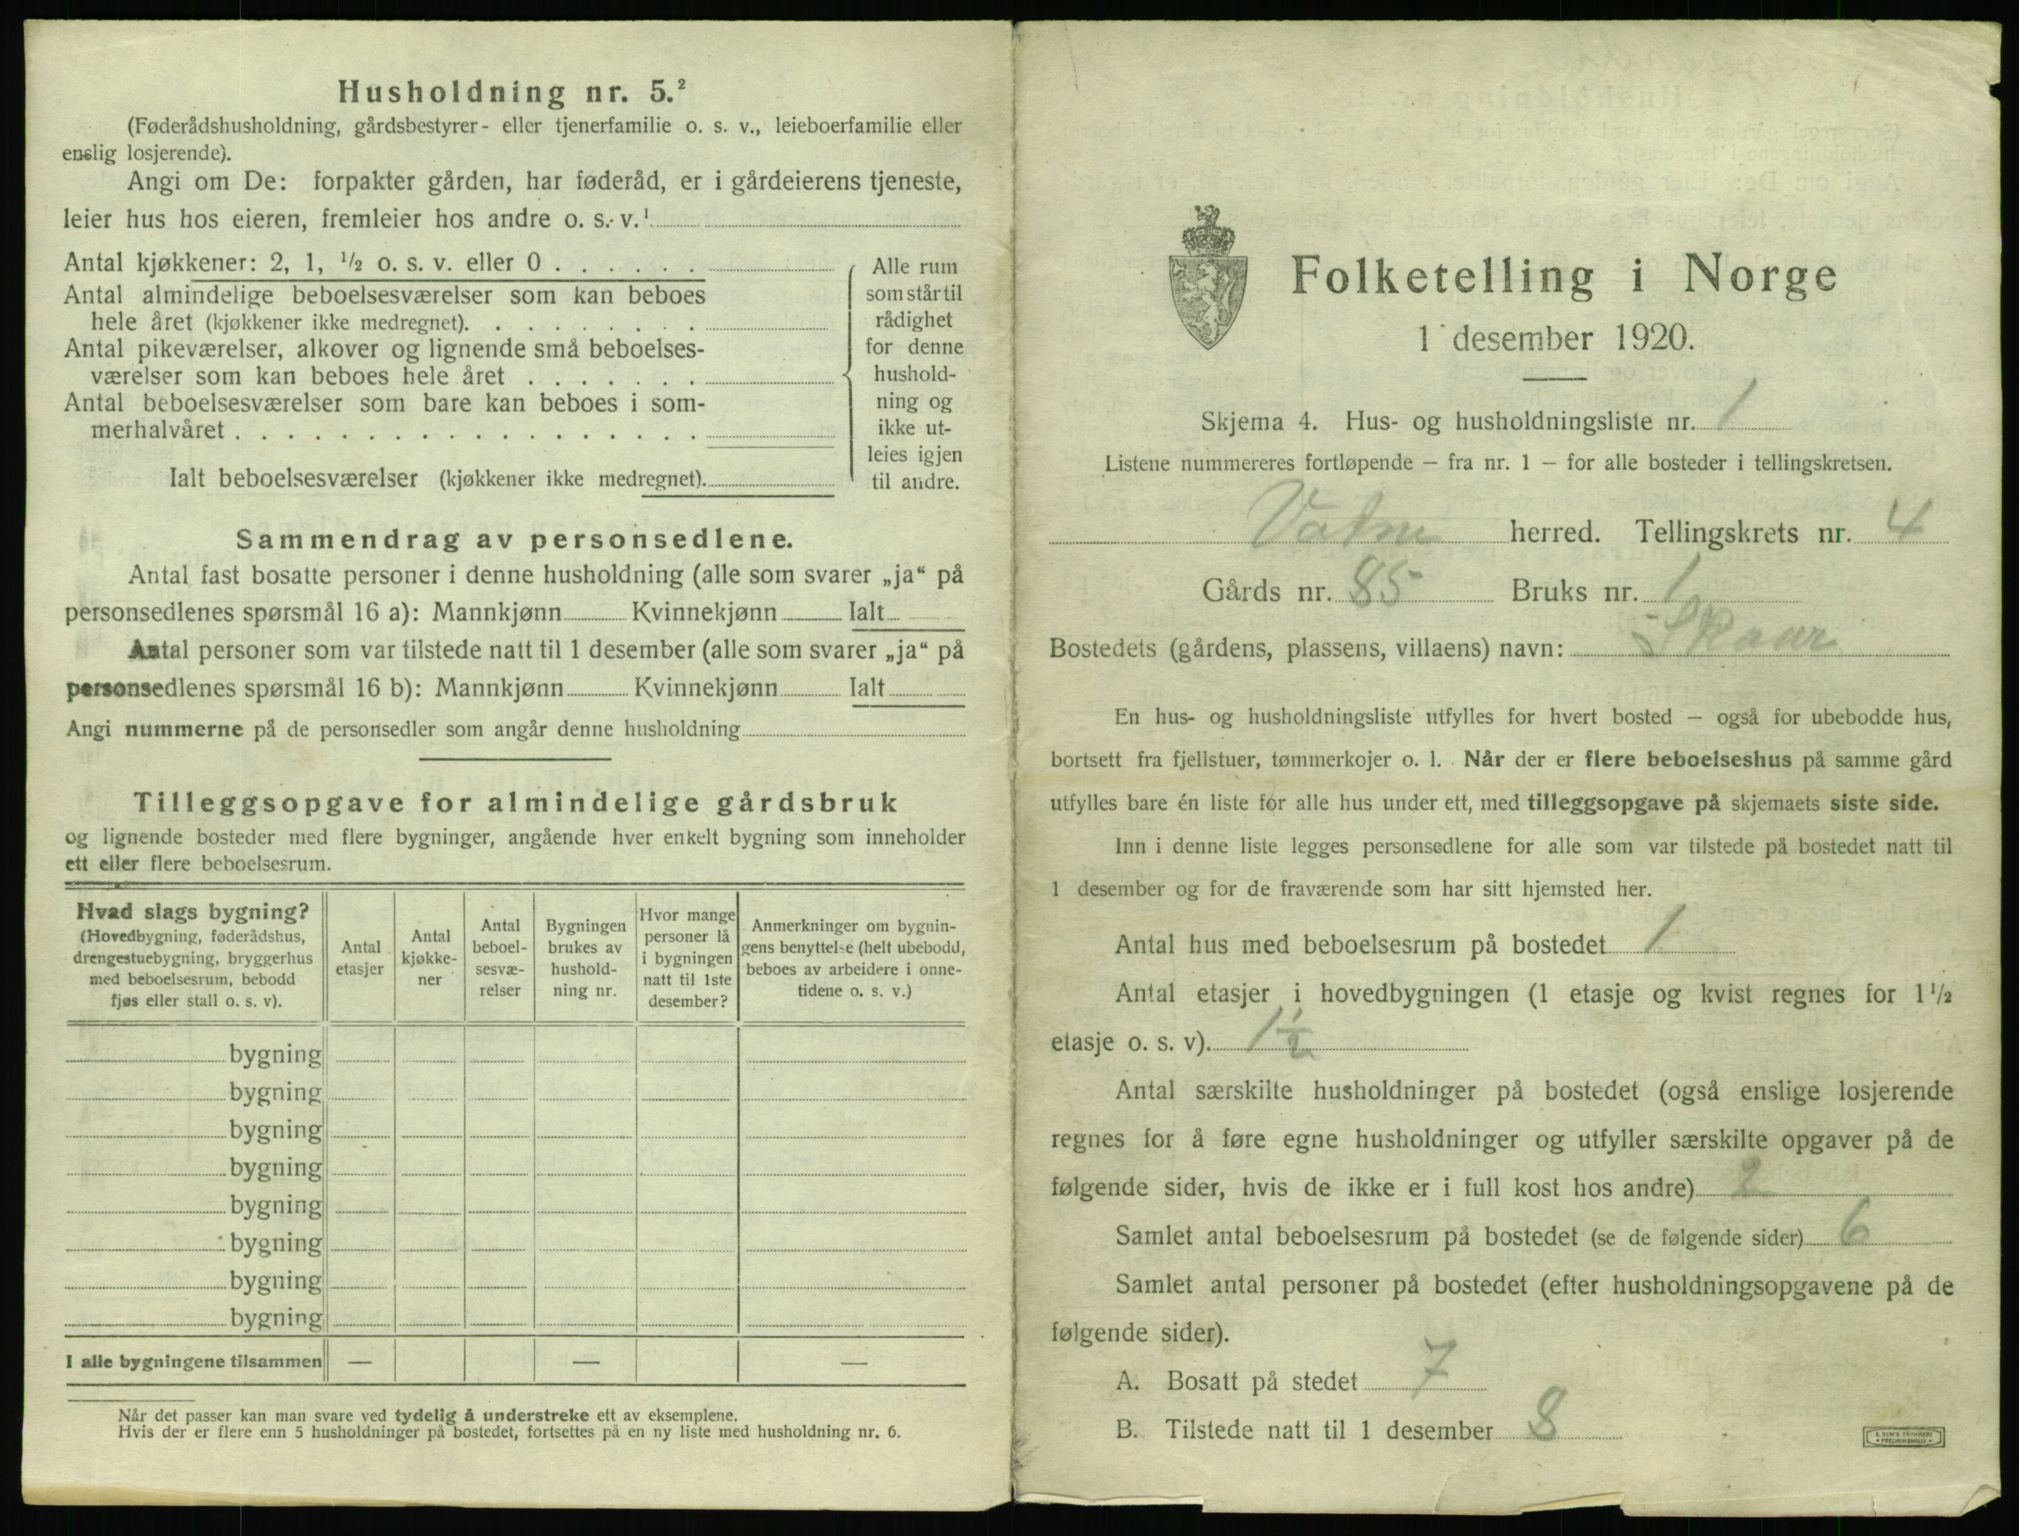 Husholdning nr. 5.²
(Føderådshusholdning, gårdsbestyrer- eller tjenerfamilie o. s. v., leieboerfamilie eller
enslig losjerende).
Angi om De: forpakter gården, har føderåd, er i gårdeierens tjeneste,
leier hus hos eieren, fremleier hos andre o. s. v.¹
Antal kjøkkener: 2, 1, ½ o. s. v. eller 0 . . . . . .
Antal almindelige beboelsesværelser som kan beboes
hele året (kjøkkener ikke medregnet). . . . . . . . .
Antal pikeværelser, alkover og lignende små beboelses-
værelser som kan beboes hele året . . . . . . .
Antal beboelsesværelser som bare kan beboes i som-
merhalvåret . . . . . . . . . . . . . . . . . .
Ialt beboelsesværelser (kjøkkener ikke medregnet).
Alle rum
som står til
rådighet
for denne
hushold-
ning og
ikke ut-
leies igjen
til andre.
Sammendrag av personsedlene.
Antal fast bosatte personer i denne husholdning (alle som svarer „ja“ på
personsedlenes spørsmål 16 a): Mannkjønn Kvinnekjønn Ialt
Antal personer som var tilstede natt til 1 desember (alle som svarer „ja“ på
personsedlenes spørsmål 16 b): Mannkjønn Kvinnekjønn Ialt
Angi nummerne på de personsedler som angår denne husholdning
Tilleggsopgave for almindelige gårdsbruk
og lignende bosteder med flere bygninger, angående hver enkelt bygning som inneholder
ett eller flere beboelsesrum.
Hvad slags bygning?
(Hovedbygning, føderådshus,
drengestuebygning, bryggerhus
med beboelsesrum, bebodd
fjøs eller stall o. s. v).
Antal
etasjer
Antal
kjøkke-
ner
Antal
beboel-
sesvæ-
relser
Bygningen
brukes av
hushold-
ning nr.
Hvor mange
personer lå
i bygningen
natt til 1ste
desember?
Anmerkninger om bygnin-
gens benyttelse (helt ubebodd,
beboes av arbeidere i onne-
tidene o. s. v.)
bygning
bygning
bygning
bygning
bygning
bygning
bygning
bygning
I alle bygningene tilsammen — — —
Når det passer kan man svare ved tydelig å understreke ett av eksemplene.
Hvis der er flere enn 5 husholdninger på bostedet, fortsettes på en ny liste med husholdning nr. 6.
Folketelling i Norge
1 desember 1920.
Skjema 4. Hus- og husholdningsliste nr. 1
Listene nummereres fortløpende – fra nr. 1 – for alle bosteder i tellingskretsen.
Vatne herred. Tellingskrets nr. 4
Gårds nr. 85 Bruks nr. 1
Bostedets (gårdens, plassens, villaens) navn: Skaar
En hus- og husholdningsliste utfylles for hvert bosted – også for ubebodde hus,
bortsett fra fjellstuer, tømmerkojer o. l. Når der er flere beboelseshus på samme gård
utfylles bare én liste for alle hus under ett, med tilleggsopgave på skjemaets siste side.
Inn i denne liste legges personsedlene for alle som var tilstede på bostedet natt til
1 desember og for de fraværende som har sitt hjemsted her.
Antal hus med beboelsesrum på bostedet 1
Antal etasjer i hovedbygningen (1 etasje og kvist regnes for 1½
etasje o. s. v). 1½
Antal særskilte husholdninger på bostedet (også enslige losjerende
regnes for å føre egne husholdninger og utfyller særskilte opgaver på de
følgende sider, hvis de ikke er i full kost hos andre) 2
Samlet antal beboelsesrum på bostedet (se de følgende sider) 6
Samlet antal personer på bostedet (efter husholdningsopgavene på de
følgende sider).
A. Bosatt på stedet 7
B. Tilstede natt til 1 desember 8